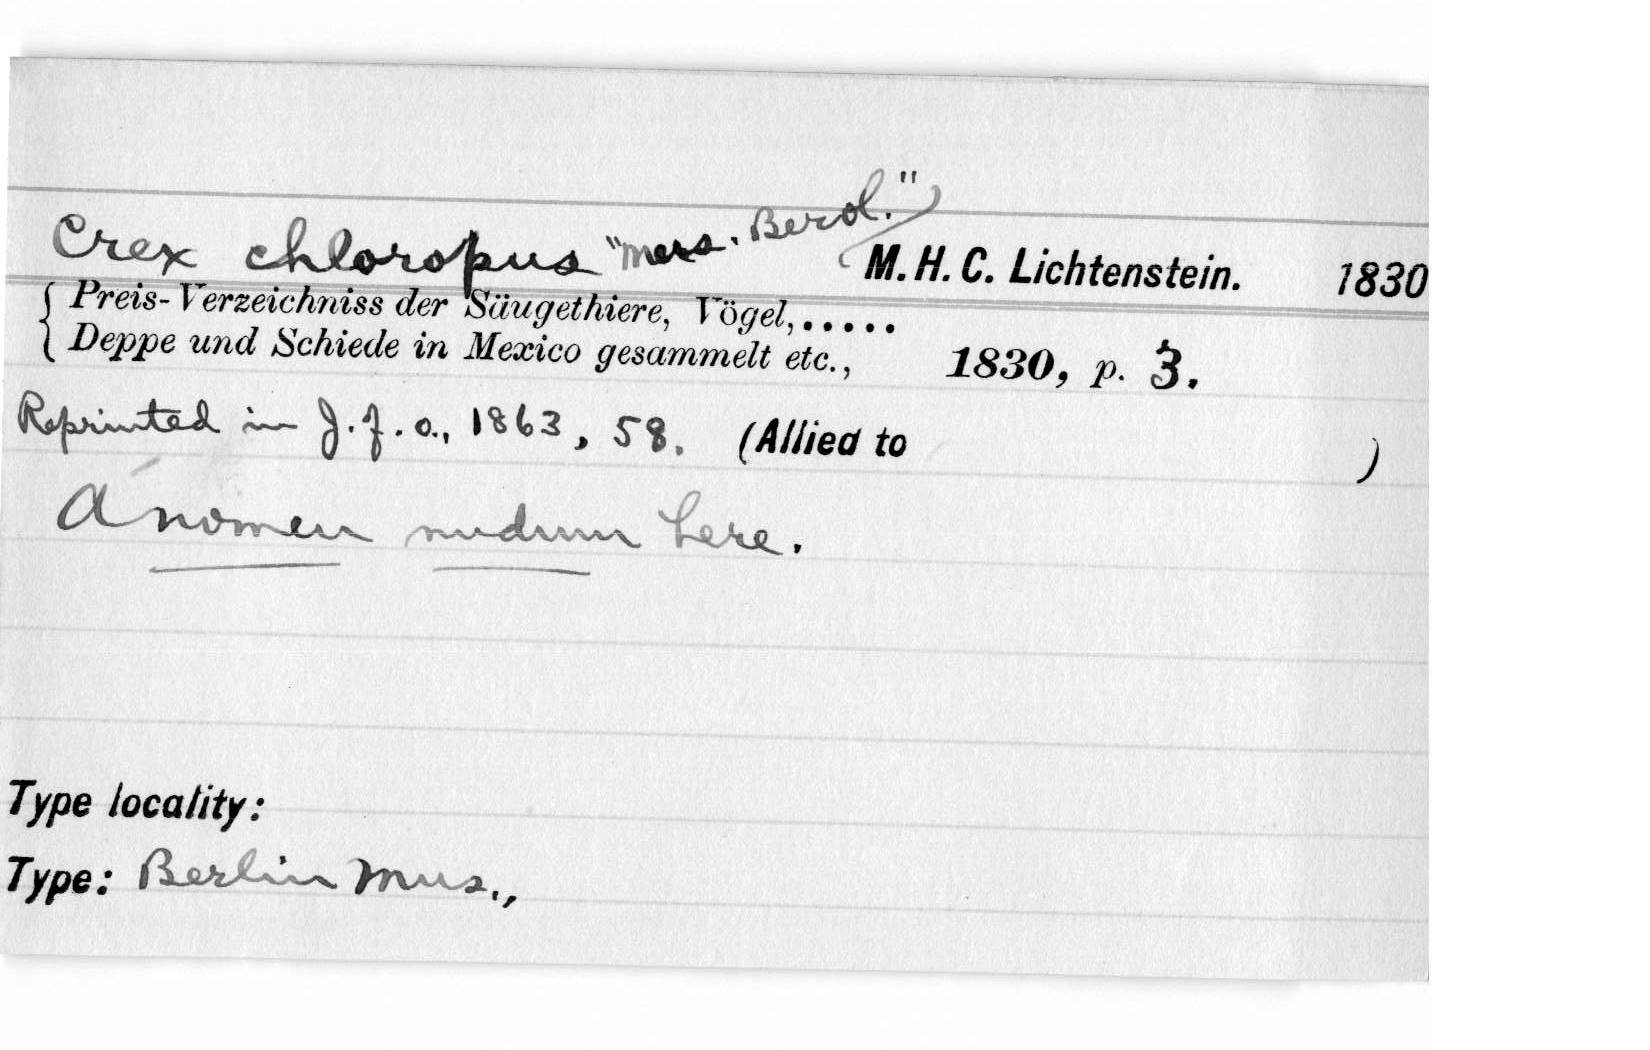 Crex chloropus "Mus. Berol."
M. H. C. Lichtenstein. 1830
Preis-Verzeichniss der Säugethiere, Vögel, .....
Deppe und Schiede in Mexico gesammelt etc., 1830, p. 3.
Reprinted in J. f. o., 1863, 58. (Allied to )
A nomen nudum here.
Type locality:
Type: Berlin Mus.,